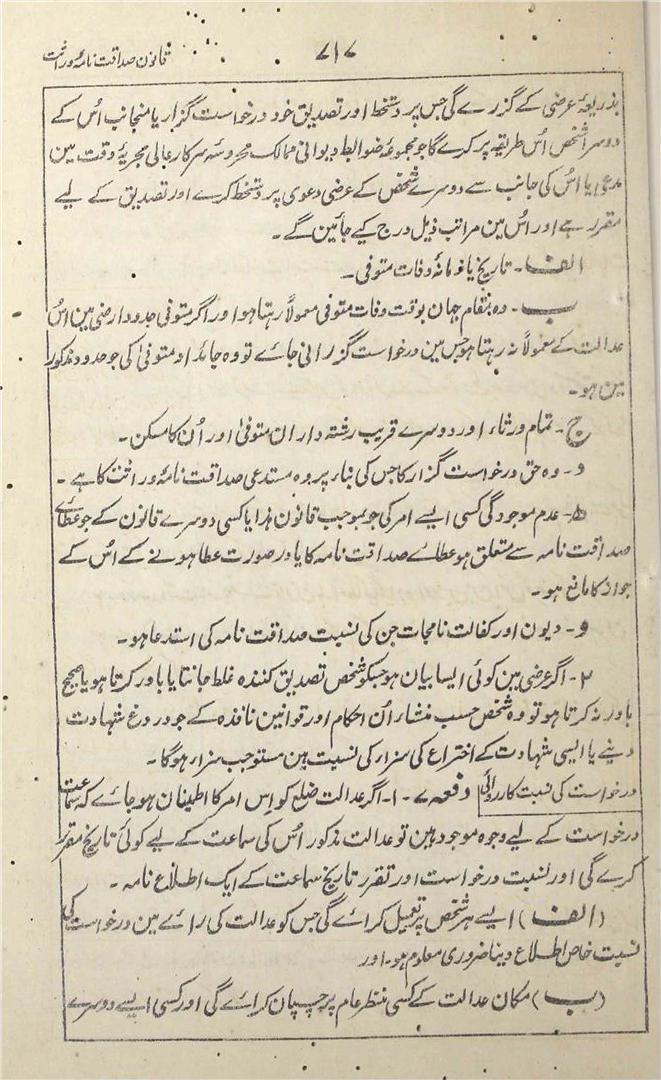 قانون صداقت نامۂ وراثت
۷۱۷
بذریعۂ عرضی کے گزرے گی جس پر دستخط اور تصدیق خود درخواست گزار یا منجانب اُس کے
دوسرا شخص اُس طریقہ پر کرے گا جو مجموعۂ ضوابط دیوانی ممالک محروسۂ سرکار عالی مجریۂ وقت مین
مدعی یا اُس کی جانب سے دوسرے شخص کے عرضی دعوی پر دستخط کرنے اور تصدیق کے لیے
مقرر ہے اور اُس مین مراتب ذیل درج کیے جائین گے۔
الف۔ تاریخ یا زمانۂ وفات متوفی۔
ب۔ وہ مقام جہان بوقت وفات متوفی معمولاً رہتا ہو اور اگر متوفی حدود ارضی مین اُس
عدالت کے معمولاً نہ رہتا ہو جس مین درخواست گزرانی جائے تو وہ جائداد متوفیٰ کی جو حدود مذکور
مین ہو۔
ج۔ تمام ورثاء اور دوسرے قریب رشتہ داران متوفیٰ اور اُن کا مسکن۔
د۔ وہ حق درخواست گزار کا جس کی بناء پر وہ مستدعی صداقت نامۂ وراثت کا ہے۔
ھ۔ عدم موجودگی کسی ایسے امر کی جو بموجب قانون ہذا یا کسی دوسرے قانون کے جو عطائے
صداقت نامہ سے متعلق ہو عطائے صداقت نامہ کا یا در صورت عطا ہونے کے اُس کے
جواز کا مانع ہو۔
و۔ دیون اور کفالت نامجات جن کی نسبت صداقت نامہ کی استدعا ہو۔
۲۔ اگر عرضی مین کوئی ایسا بیان ہو جسکو شخص تصدیق کنندہ غلط جانتا یا باور کرتا ہو یا صحیح
باور نہ کرتا ہو تو وہ شخص حسب منشاء اُن احکام اور قوانین نافذہ کے جو دروغ شہادت
دینے یا ایسی شہادت کے اختراع کی سزا کی نسبت ہین مستوجب سزا ہوگا۔
درخواست کی نسبت کارروائی دفعہ ۷۔ ۱۔ اگر عدالت ضلع کو اِس امر کا اطمینان ہو جائے کہ سماعت
درخواست کے لیے وجوہ موجود ہین تو عدالت مذکور اُس کی سماعت کے لیے کوئی تاریخ مقرر
کرے گی اور نسبت درخواست اور تقرر تاریخ سماعت کے ایک اطلاع نامہ۔
(الف) ایسے ہر شخص پر تعمیل کرائے گی جس کو عدالت کی رائے مین درخواست کی
نسبت خاص اطلاع دینا ضروری معلوم ہو۔ اور
(ب) مکان عدالت کے کسی منظر عام پر چسپان کرائے گی اور کسی ایسے دوسرے